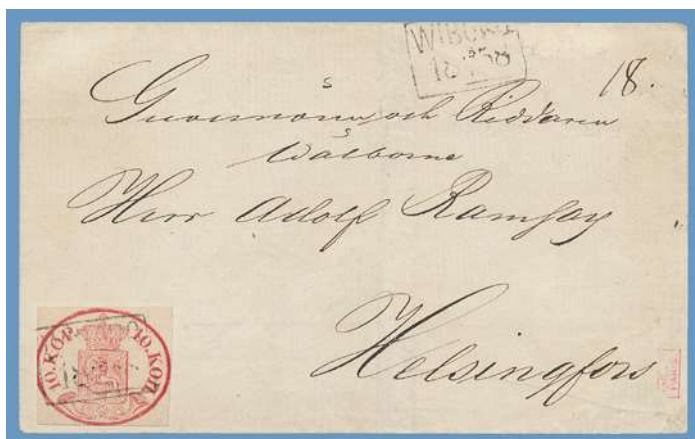 WIBORG
18.
Guvernören och Riddaren
Wälborne
Herr Adolf Ramsay
Helsingfors
10. KOP. 10. КОП.
PARIS